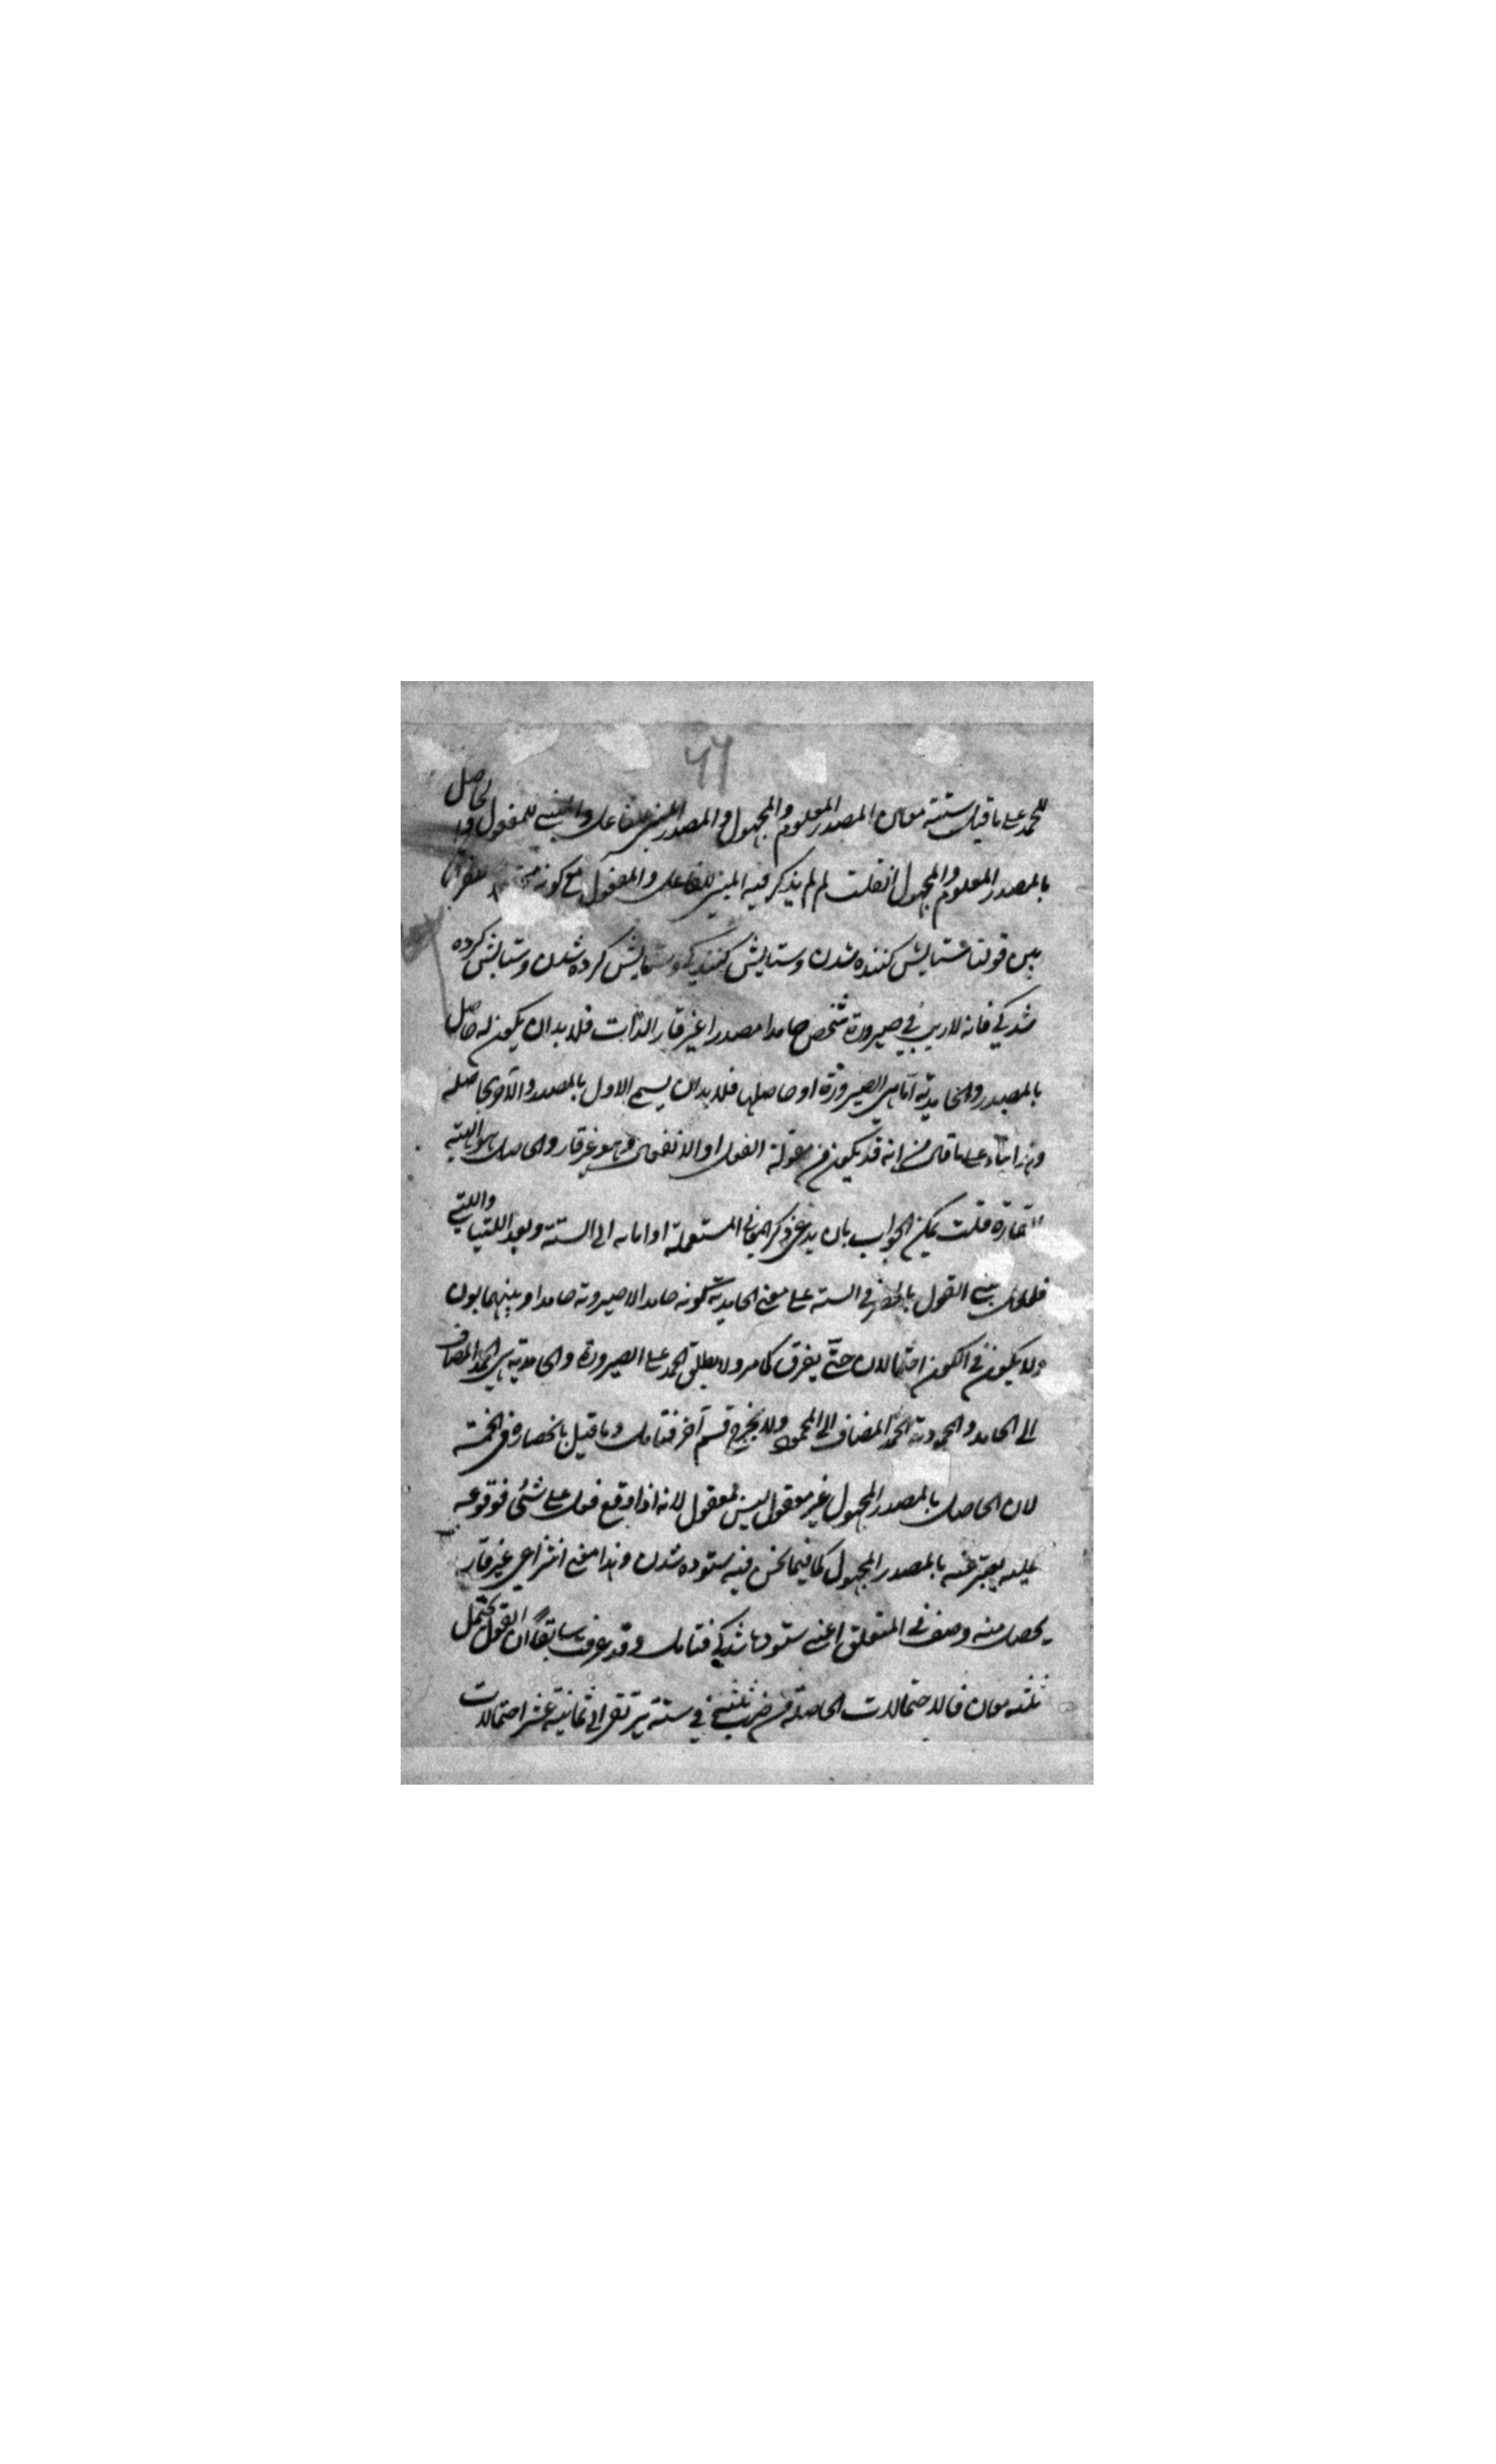 ٦٦
للحمد على ما قيل ستة معان المصدر المعلوم والمجهول والمصدر المبنى للفاعل والمبنى للمفعول والحاصل
بالمصدر المعلوم والمجهول ان قلت لم لم يذكر فيه المبنى للفاعل والمفعول مع كونه
بين قولنا ستايش كننده شدن وستايش كنندگى وستايش كرده شدن وستايش كرده
شدگى فانه لا ريب فى صيرورة شخص حامدا مصدرا غير قار الذات فلا بد ان يكون له حاصل
بالمصدر والحامدية اما هى الصيرورة او حاصلها فلا بد ان يسمى الاول بالمصدر والآخر بحاصله
وهذا بناء على ما قال من انه قد يكون من مقولة الفعل او الانفعال وهو غير قار والحاصل به هو الهيئة
القارة قلت يمكن الجواب بان ذكر المعانى المستعملة الى الستة وبعد اللتيا والتى
القول بالحصر فى الستة على معنى الحامدية كونه حامدا لا صيرورته حامدا وبينهما بون
ولا يكون فى الكون احتمالان حتى يفرق كما مر ولا يطلق الحمد على الصيرورة والحامدية هى الحمد المضاف
الى الحامد والمحمودية الحمد المضاف الى المحمود ولا يخرج قسم آخر فتامل وما قيل بانحصاره فى الخمسة
لان الحاصل بالمصدر المجهول غير معقول ليس بمعقول لانه اذا وقع فعل على شئ فوقوعه
عليه يعبر عنه بالمصدر المجهول كما فيما نحن فيه ستوده شدن وهذا معنى انتزاعى غير قار
يحصل منه وصف فى المتعلق اعنى ستوده شدگى فتامل وقد عرفت سابقا ان القول يحتمل
ثلثة معان فالاحتمالات الحاصلة من ضرب ثلثة فى ستة ترتقى الى ثمانية عشر احتمالات